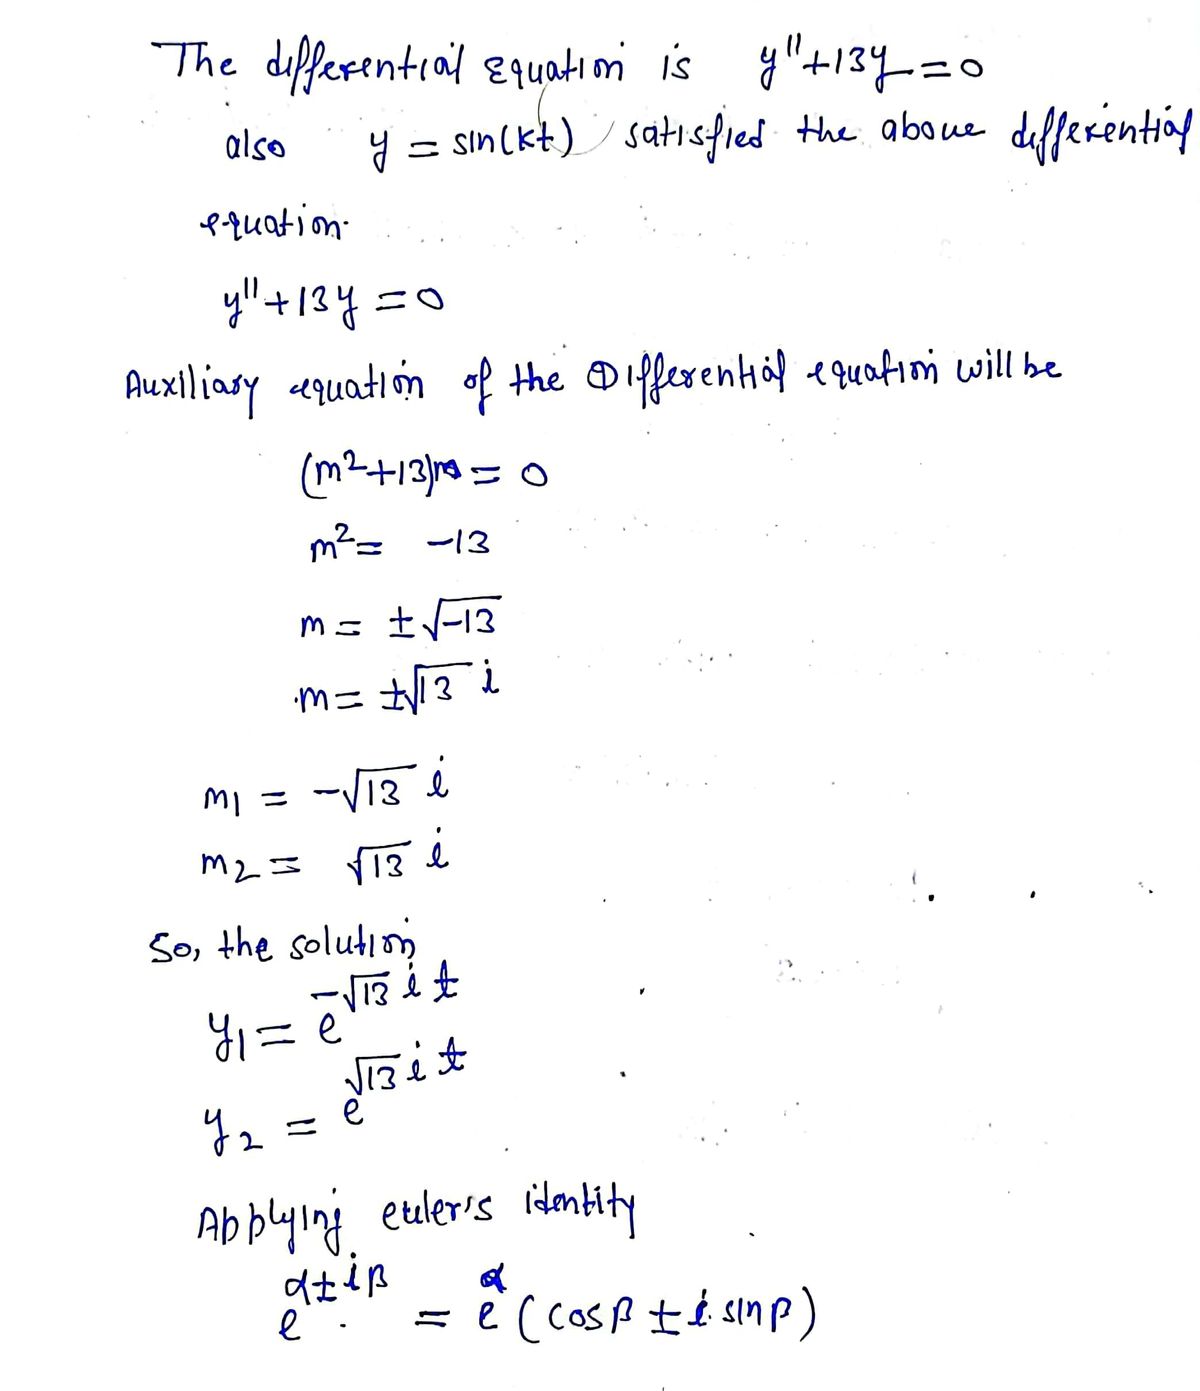 The differential Equation is y''+13y=0
also y = sin(kt) satisfied the above differential
equation.
y''+13y=0
Auxiliary equation of the Differential equation will be
(m²+13) = 0
m² = -13
m = ±√-13
m = ±√13 i
m1 = -√13 i
m2 = √13 i
So, the solution
y1 = e^{-√13 i t}
y2 = e^{√13 i t}
Applying euler's identity
e^{α±iβ} = e^α (cosβ ± i sinβ)